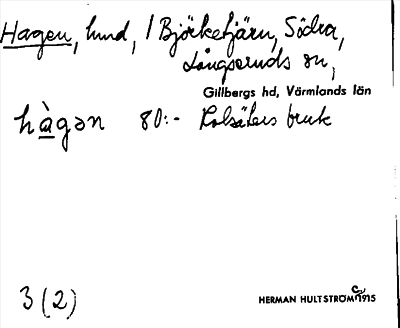 Hagen, hund, / Björketjärn, Södra,
Långseruds sn,
Gillbergs hd, Värmlands län
hàgan 80:- Rolsäters bruk
3 (2)
HERMAN HULTSTRÖM C 1915